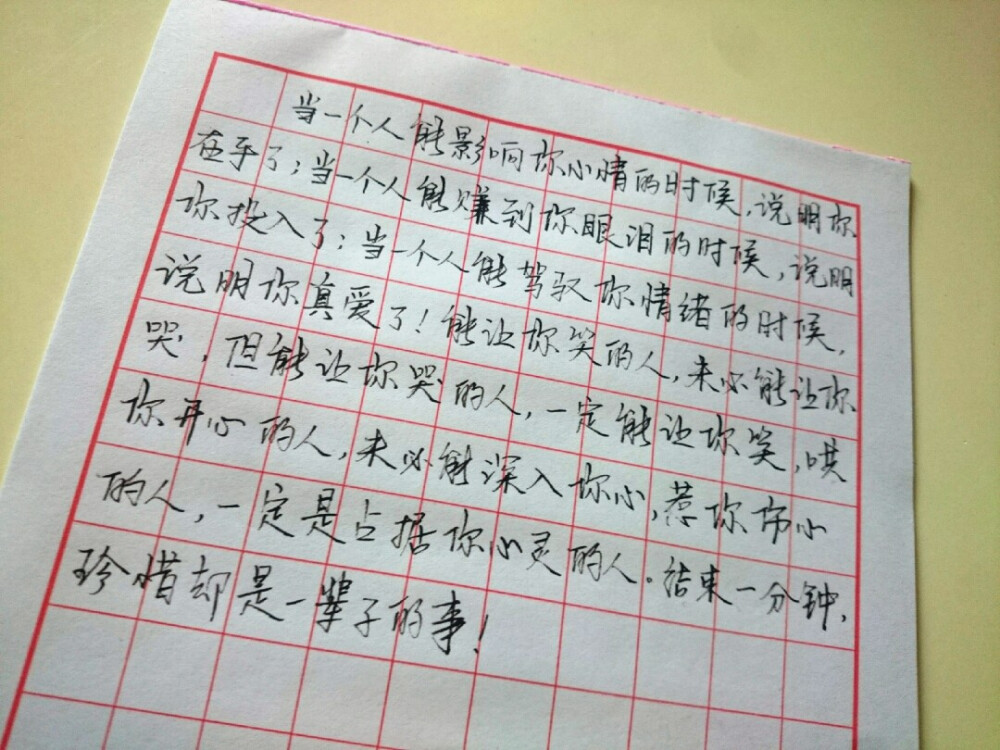 当一个人能影响你心情的时候,说明你
在乎了;当一个人能赚到你眼泪的时候,说明
你投入了;当一个人能驾驭你情绪的时候,
说明你真爱了!能让你笑的人,未必能让你
哭,但能让你哭的人,一定能让你笑,哄
你开心的人,未必能深入你心,惹你伤心
的人,一定是占据你心灵的人。结束一分钟,
珍惜却是一辈子的事!